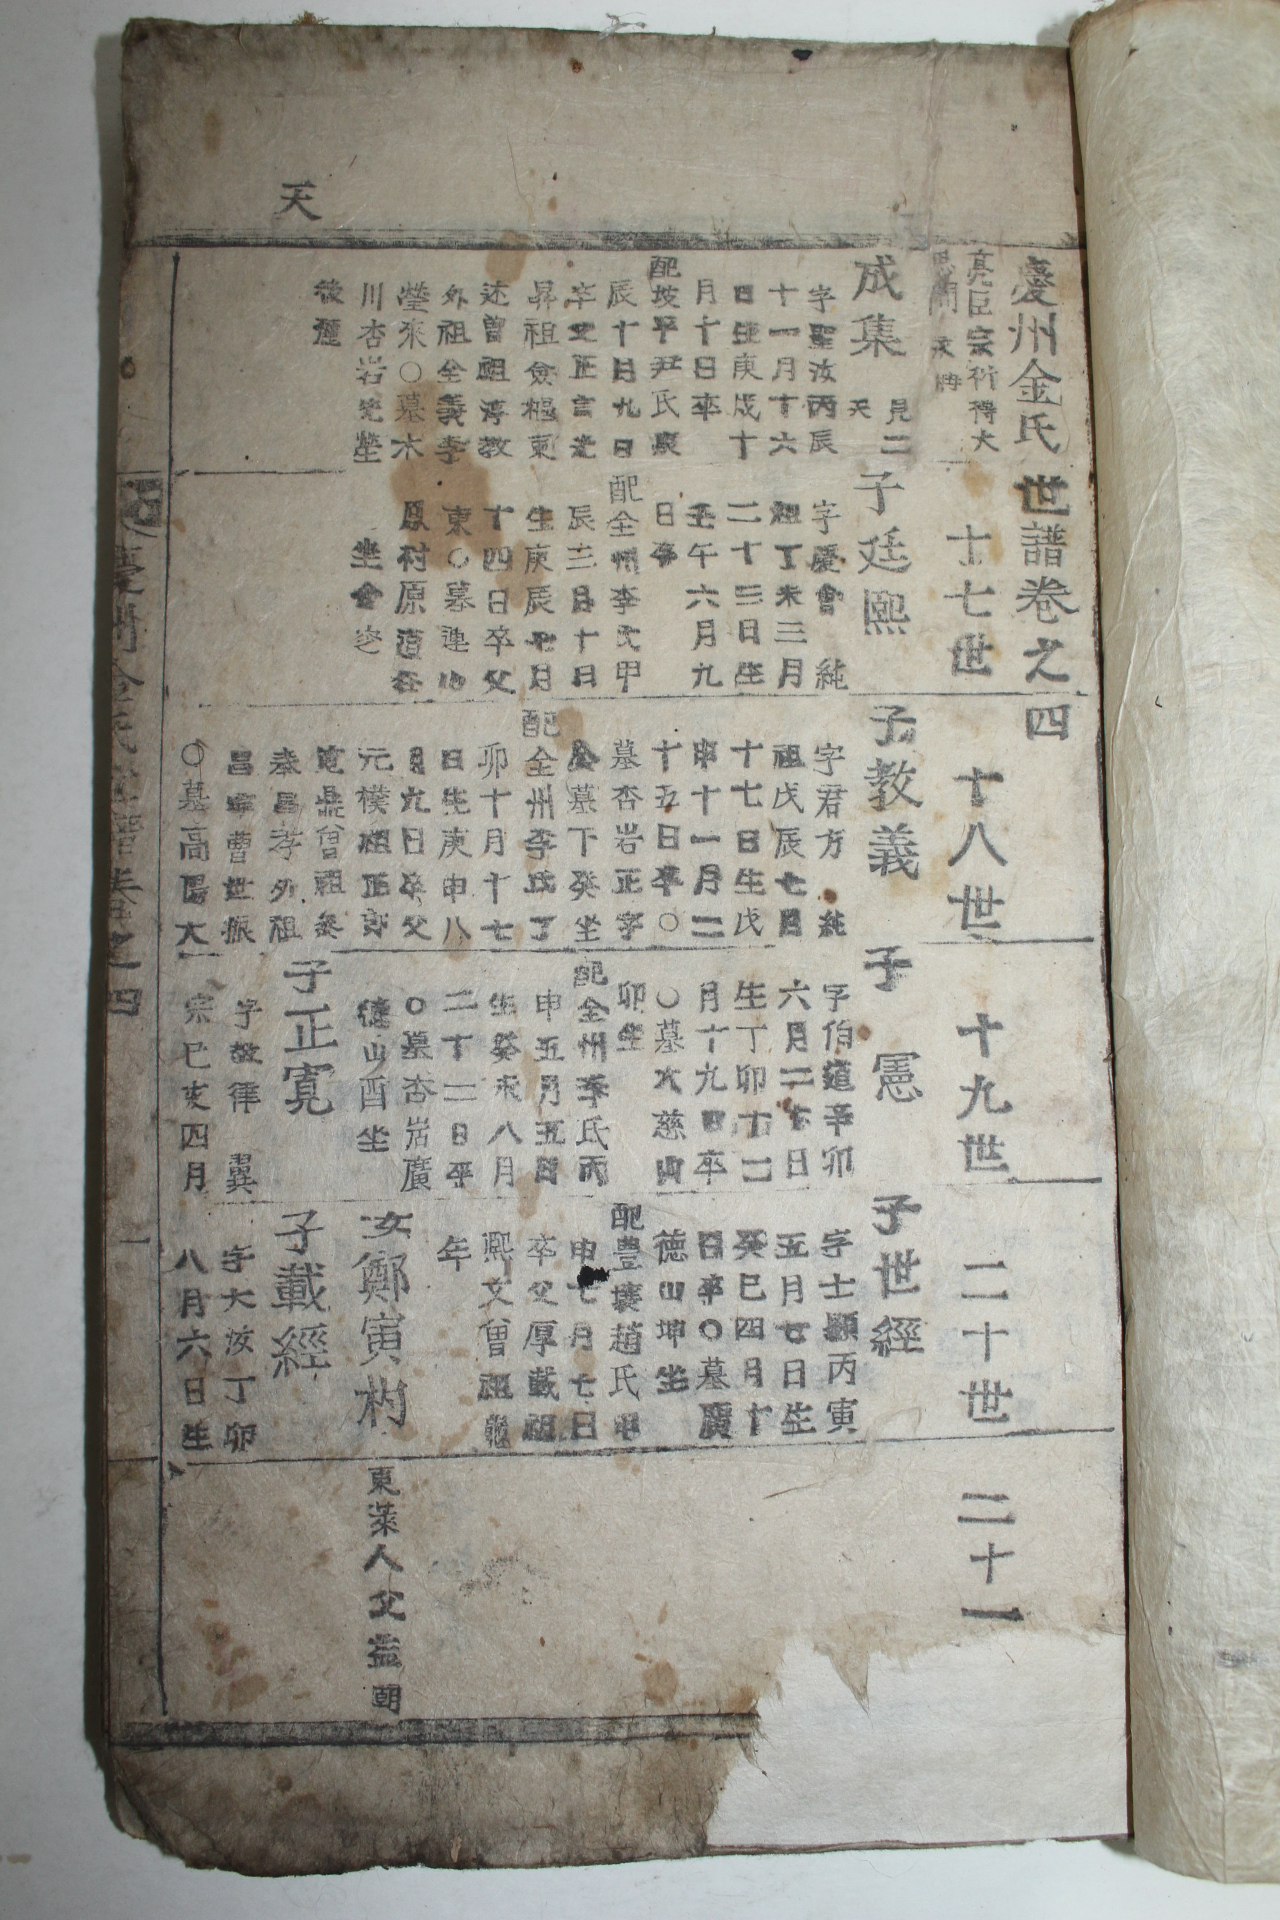 慶州金氏世譜卷之四
十七世
十八世
十九世
二十世
二十一
天
成集
見二
天
字聖汝丙辰
十一月十六
日生庚戌十
月十日卒
配坡平尹氏
辰十日九日
卒父正言
昇祖
述曾祖淳教
外祖全義李
瑩來○墓木
川杏岩先塋
後麓
子廷熙
字慶會 純
祖丁未三月
二十三日生
壬午六月九
日卒
配全州李氏甲
辰三月十日
生庚辰七月
十四日卒父
東○墓連山
原村原道谷
坐合窆
子教義
字君方 純
祖戊辰七月
十七日生戊
申十一月二
十五日卒○
墓杏岩正字
公墓下癸坐
配全州李氏丁
卯十月十七
日生庚申八
月九日卒父
元樸祖正
寬鼎曾祖
奉昌孝外祖
昌寧曹世振
○墓高陽大
子憲
字伯道辛卯
六月二十日
生丁卯十二
月十九日卒
○墓大慈山
卯坐
配全州李氏丙
申五月五日
生癸未八月
二十二日卒
○墓杏岩廣
德山酉坐
子正寬
字敬律 翼
宗己亥四月
子世經
字士顯丙寅
五月七日生
癸巳四月十
日卒○墓廣
德山坤坐
配豊壤趙氏甲
申七月七日
卒父厚載祖
熙文曾祖龜
年
女鄭寅杓
東萊人父益朝
子載經
字大汝丁卯
八月六日生
慶州金氏世譜卷之四
一